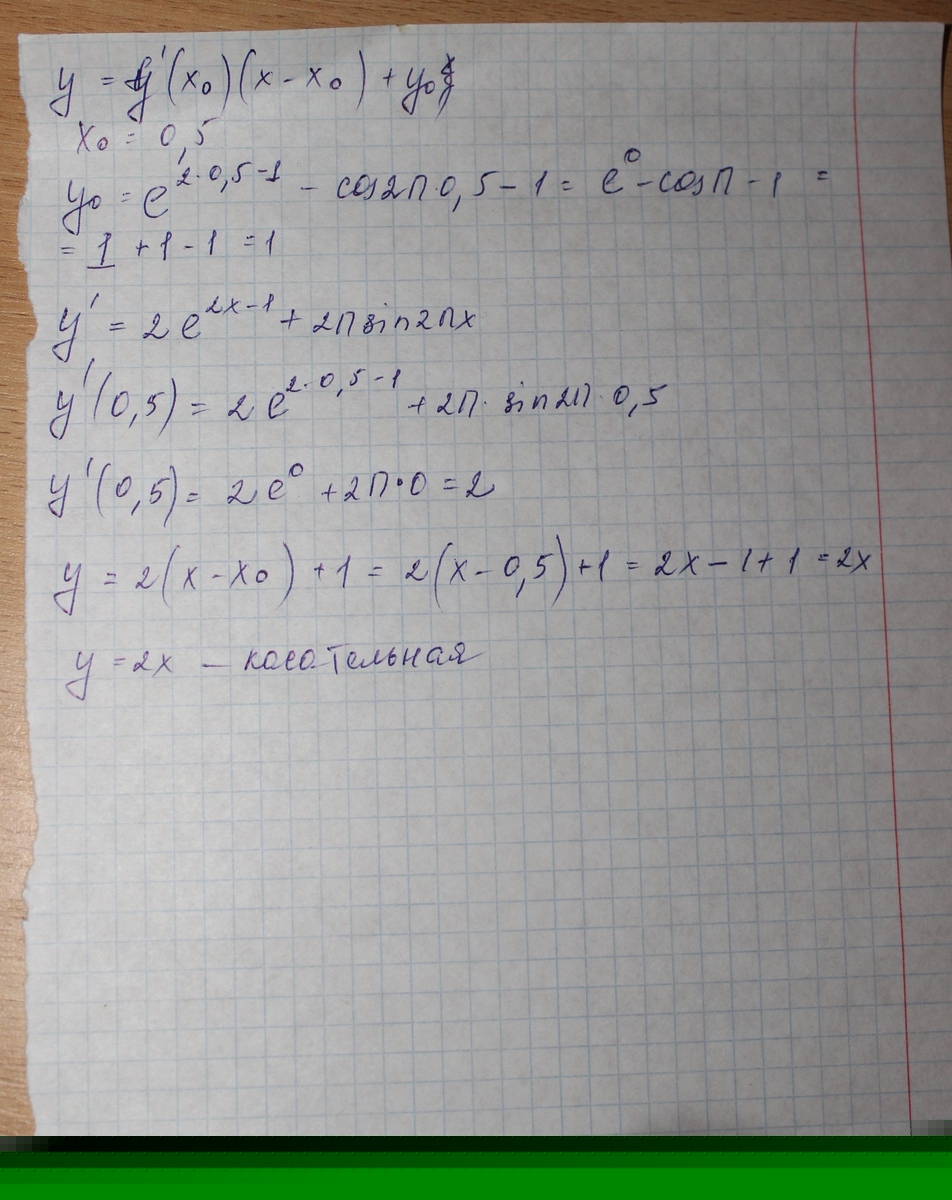 y = y'(x₀)(x - x₀) + y₀
x₀ = 0,5
y₀ = e^{2·0,5-1} - cos2π·0,5 - 1 = e⁰ - cosπ - 1 =
= 1 + 1 - 1 = 1
y' = 2e^{2x-1} + 2πsin2πx
y'(0,5) = 2e^{2·0,5-1} + 2π·sin2π·0,5
y'(0,5) = 2e⁰ + 2π·0 = 2
y = 2(x - x₀) + 1 = 2(x - 0,5) + 1 = 2x - 1 + 1 = 2x
y = 2x — касательная